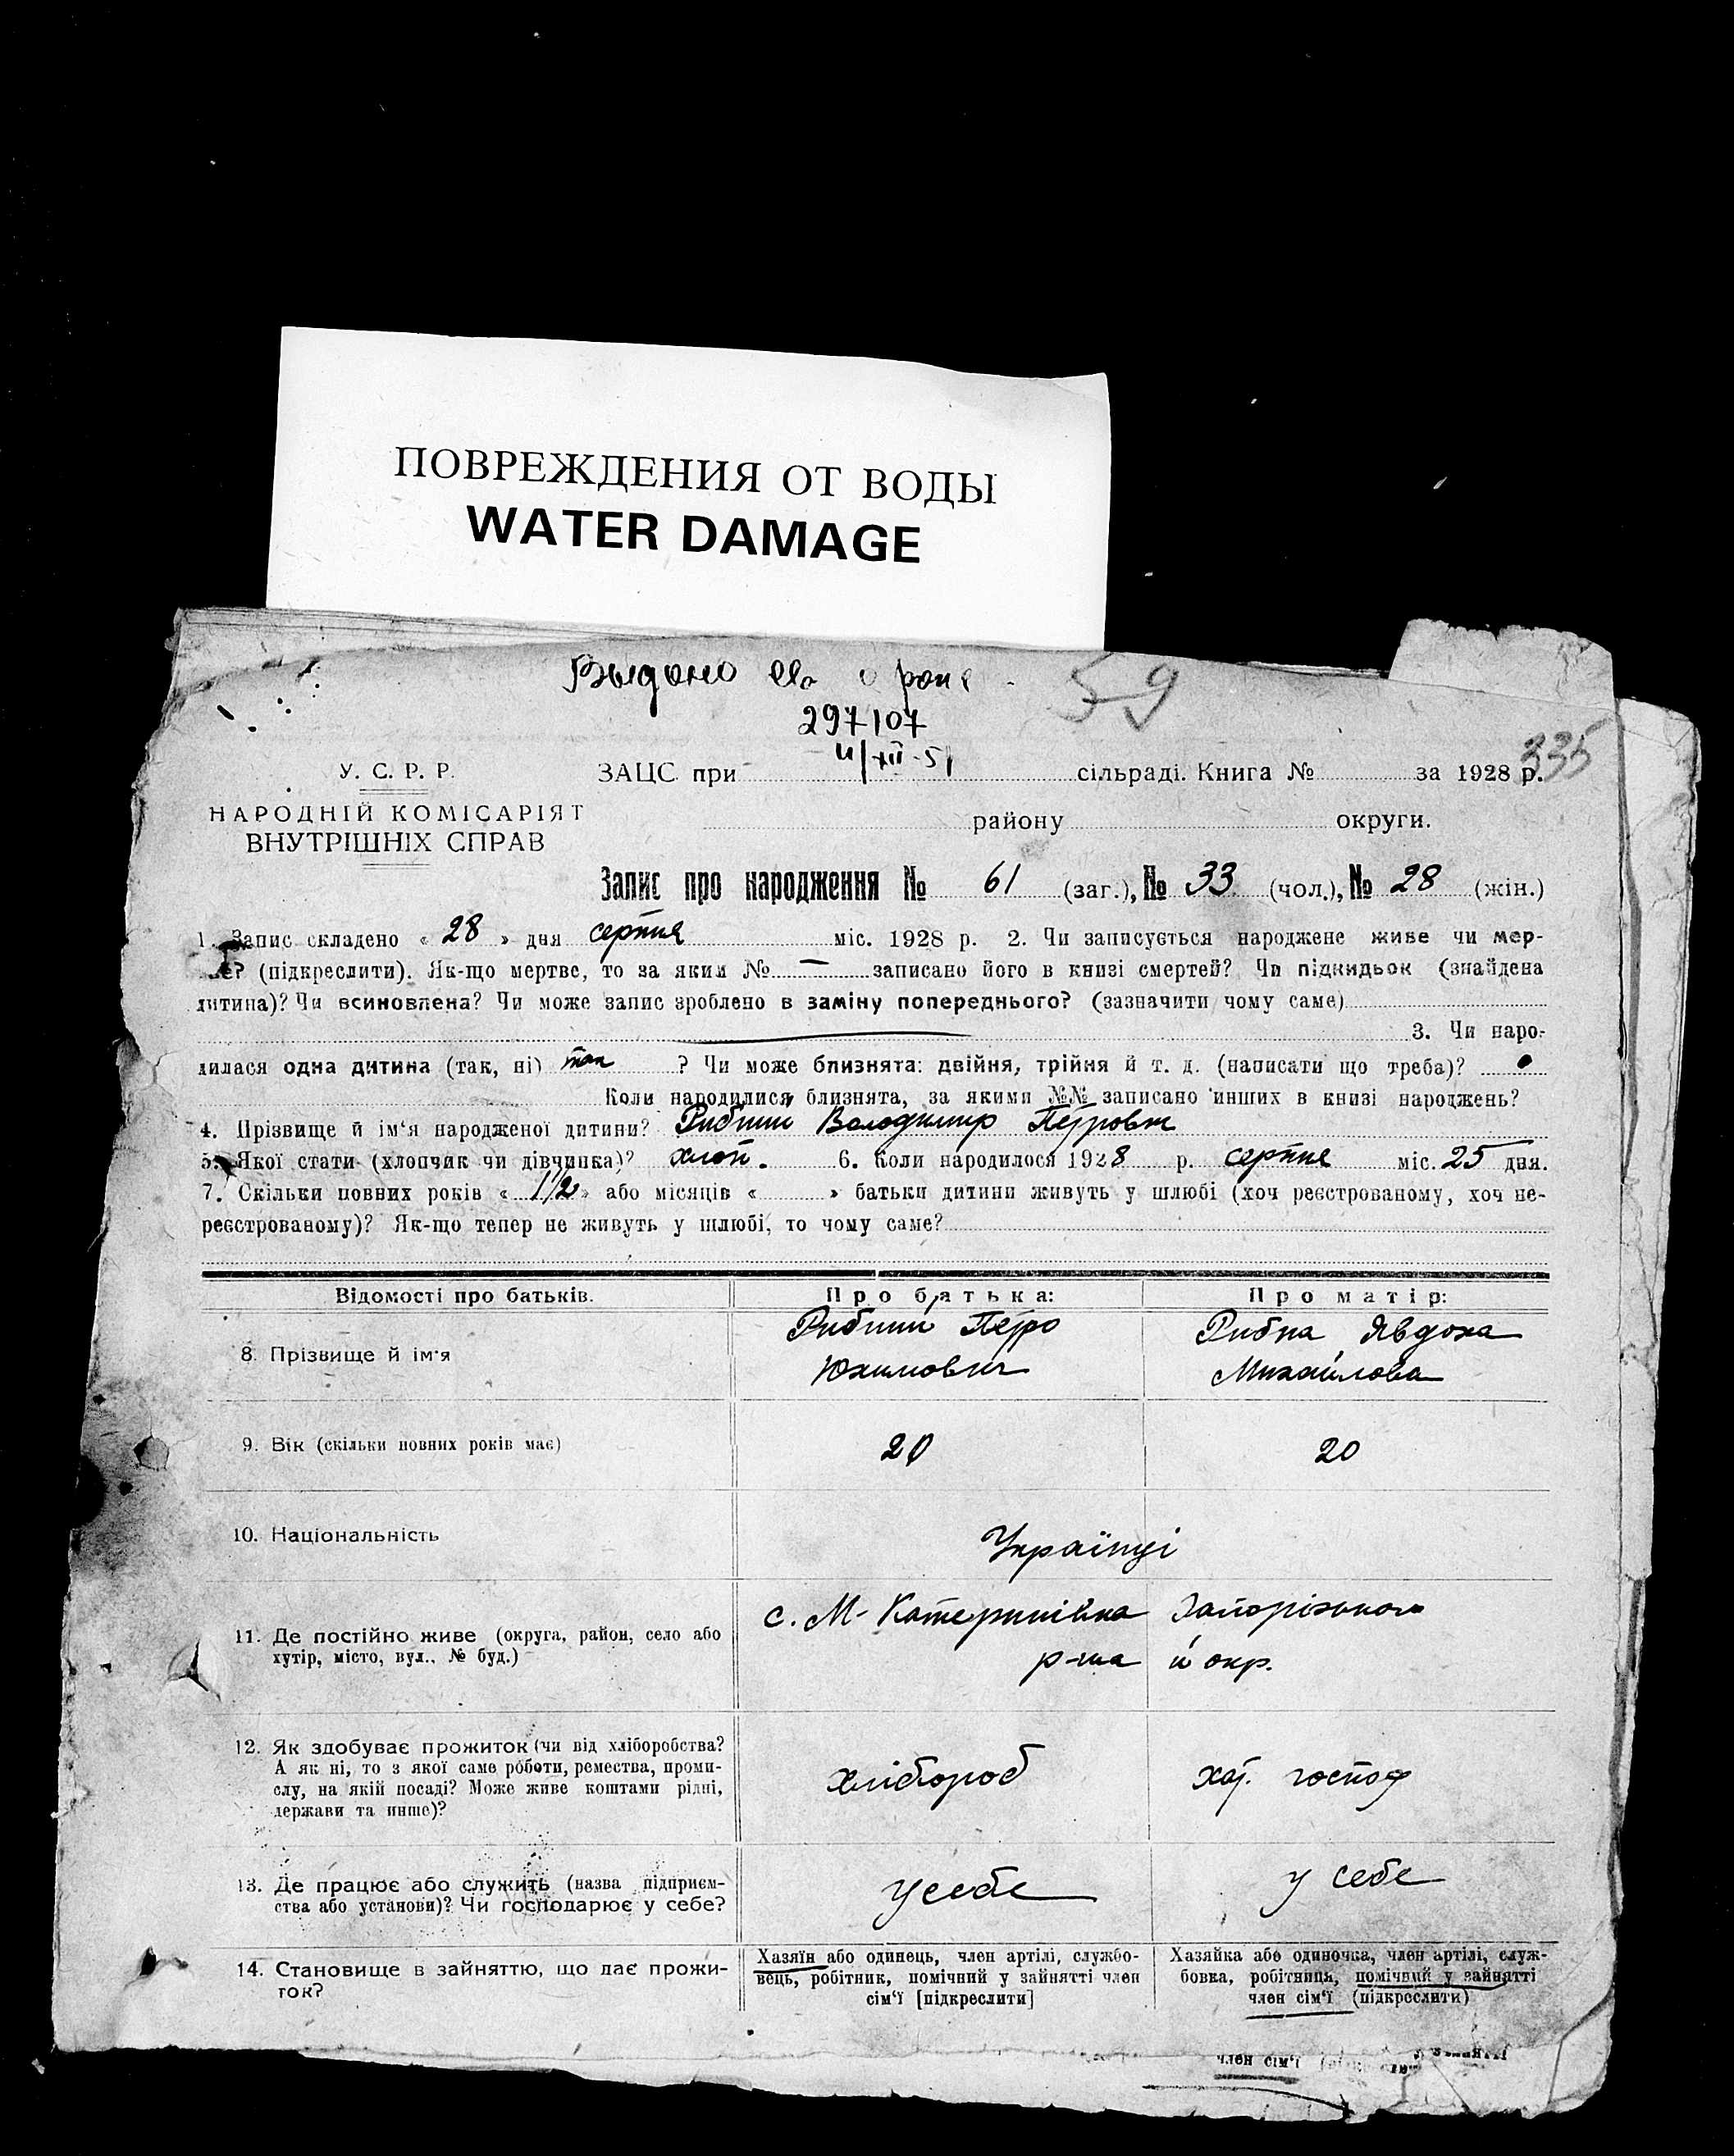 ПОВРЕЖДЕНИЯ ОТ ВОДЫ
WATER DAMAGE
Выдано
59
297107
335
У. С. Р. Р.
ЗАЦС при 4/XII-51 сільраді. Книга № за 1928 р.
НАРОДНІЙ КОМІСАРІЯТ
ВНУТРІШНІХ СПРАВ
району округи.
Запис про народження № 61 (заг.), № 33 (чол.), № 28 (жін.)
1. Запис складено « 28 » дня серпня міс. 1928 р. 2. Чи записується народжене живе чи мер-
ве? (підкреслити). Як-що мертве, то за яким № — записано його в книзі смертей? Чи підкидьок (знайдена
дитина)? Чи всиновлена? Чи може запис зроблено в заміну попереднього? (зазначити чому саме)
3. Чи наро-
дилася одна дитина (так, ні) так ? Чи може близнята: двійня, трійня й т. д. (написати що треба)?
Коли народилися близнята, за якими №№ записано инших в книзі народжень?
4. Прізвище й ім‘я народженої дитини? Рибний Володимир Петрович
5. Якої стати (хлопчик чи дівчинка)? хлоп. 6. Коли народилося 1928 р. серпня міс. 25 дня.
7. Скільки повних років « 1 1/2 » або місяців « » батьки дитини живуть у шлюбі (хоч реєстрованому, хоч не-
реєстрованому)? Як-що тепер не живуть у шлюбі, то чому саме?
Відомості про батьків. Про батька: Про матір:
8. Прізвище й ім‘я
Рибний Петро
Юхимович
Рибна Явдоха
Михайлова
9. Вік (скільки повних років має) 20 20
10. Національність Українці
11. Де постійно живе (округа, район, село або
хутір, місто, вул., № буд.)
с. М-Катеринівка Запорізького
р-на й окр.
12. Як здобуває прожиток (чи від хліборобства?
А як ні, то з якої саме роботи, ремества, проми-
слу, на якій посаді? Може живе коштами рідні,
держави та инше)?
хлібороб
хат. господ
13. Де працює або служить (назва підприєм-
ства або установи)? Чи господарює у себе?
у себе
у себе
14. Становище в зайняттю, що дає прожи-
ток?
Хазяїн або одинець, член артілі, службо-
вець, робітник, помічний у зайнятті член
сім‘ї [підкреслити]
Хазяйка або одиночка, член артілі, служ-
бовка, робітниця, помічний у зайнятті
член сім‘ї (підкреслити)
член сім‘ї